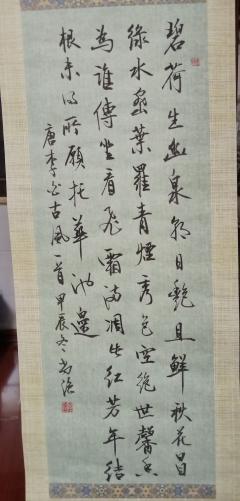 碧荷生幽泉朝日艷且鮮秋花冒
綠水密葉羅青煙秀色空絕世馨香
為誰傳坐看飛霜滿凋此紅芳年結
根未得所願托華池邊
唐李白古風一首甲辰冬